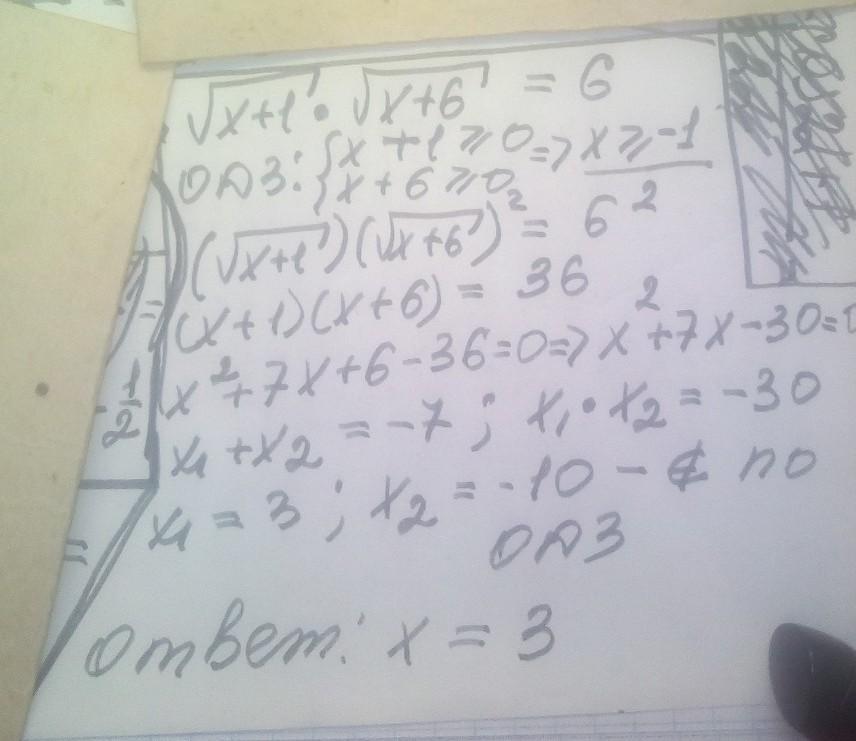 √x+1 · √x+6 = 6
ОДЗ: { x + 1 ⩾ 0 => x ⩾ -1
x + 6 ⩾ 0
(√x+1)(√x+6)² = 6²
(x+1)(x+6) = 36
x²+7x+6-36=0=> x²+7x-30=0
x₁+x₂ = -7; x₁·x₂ = -30
x₁ = 3; x₂ = -10 - ∉ по
ОДЗ
ответ: x = 3
-1/2
=
=